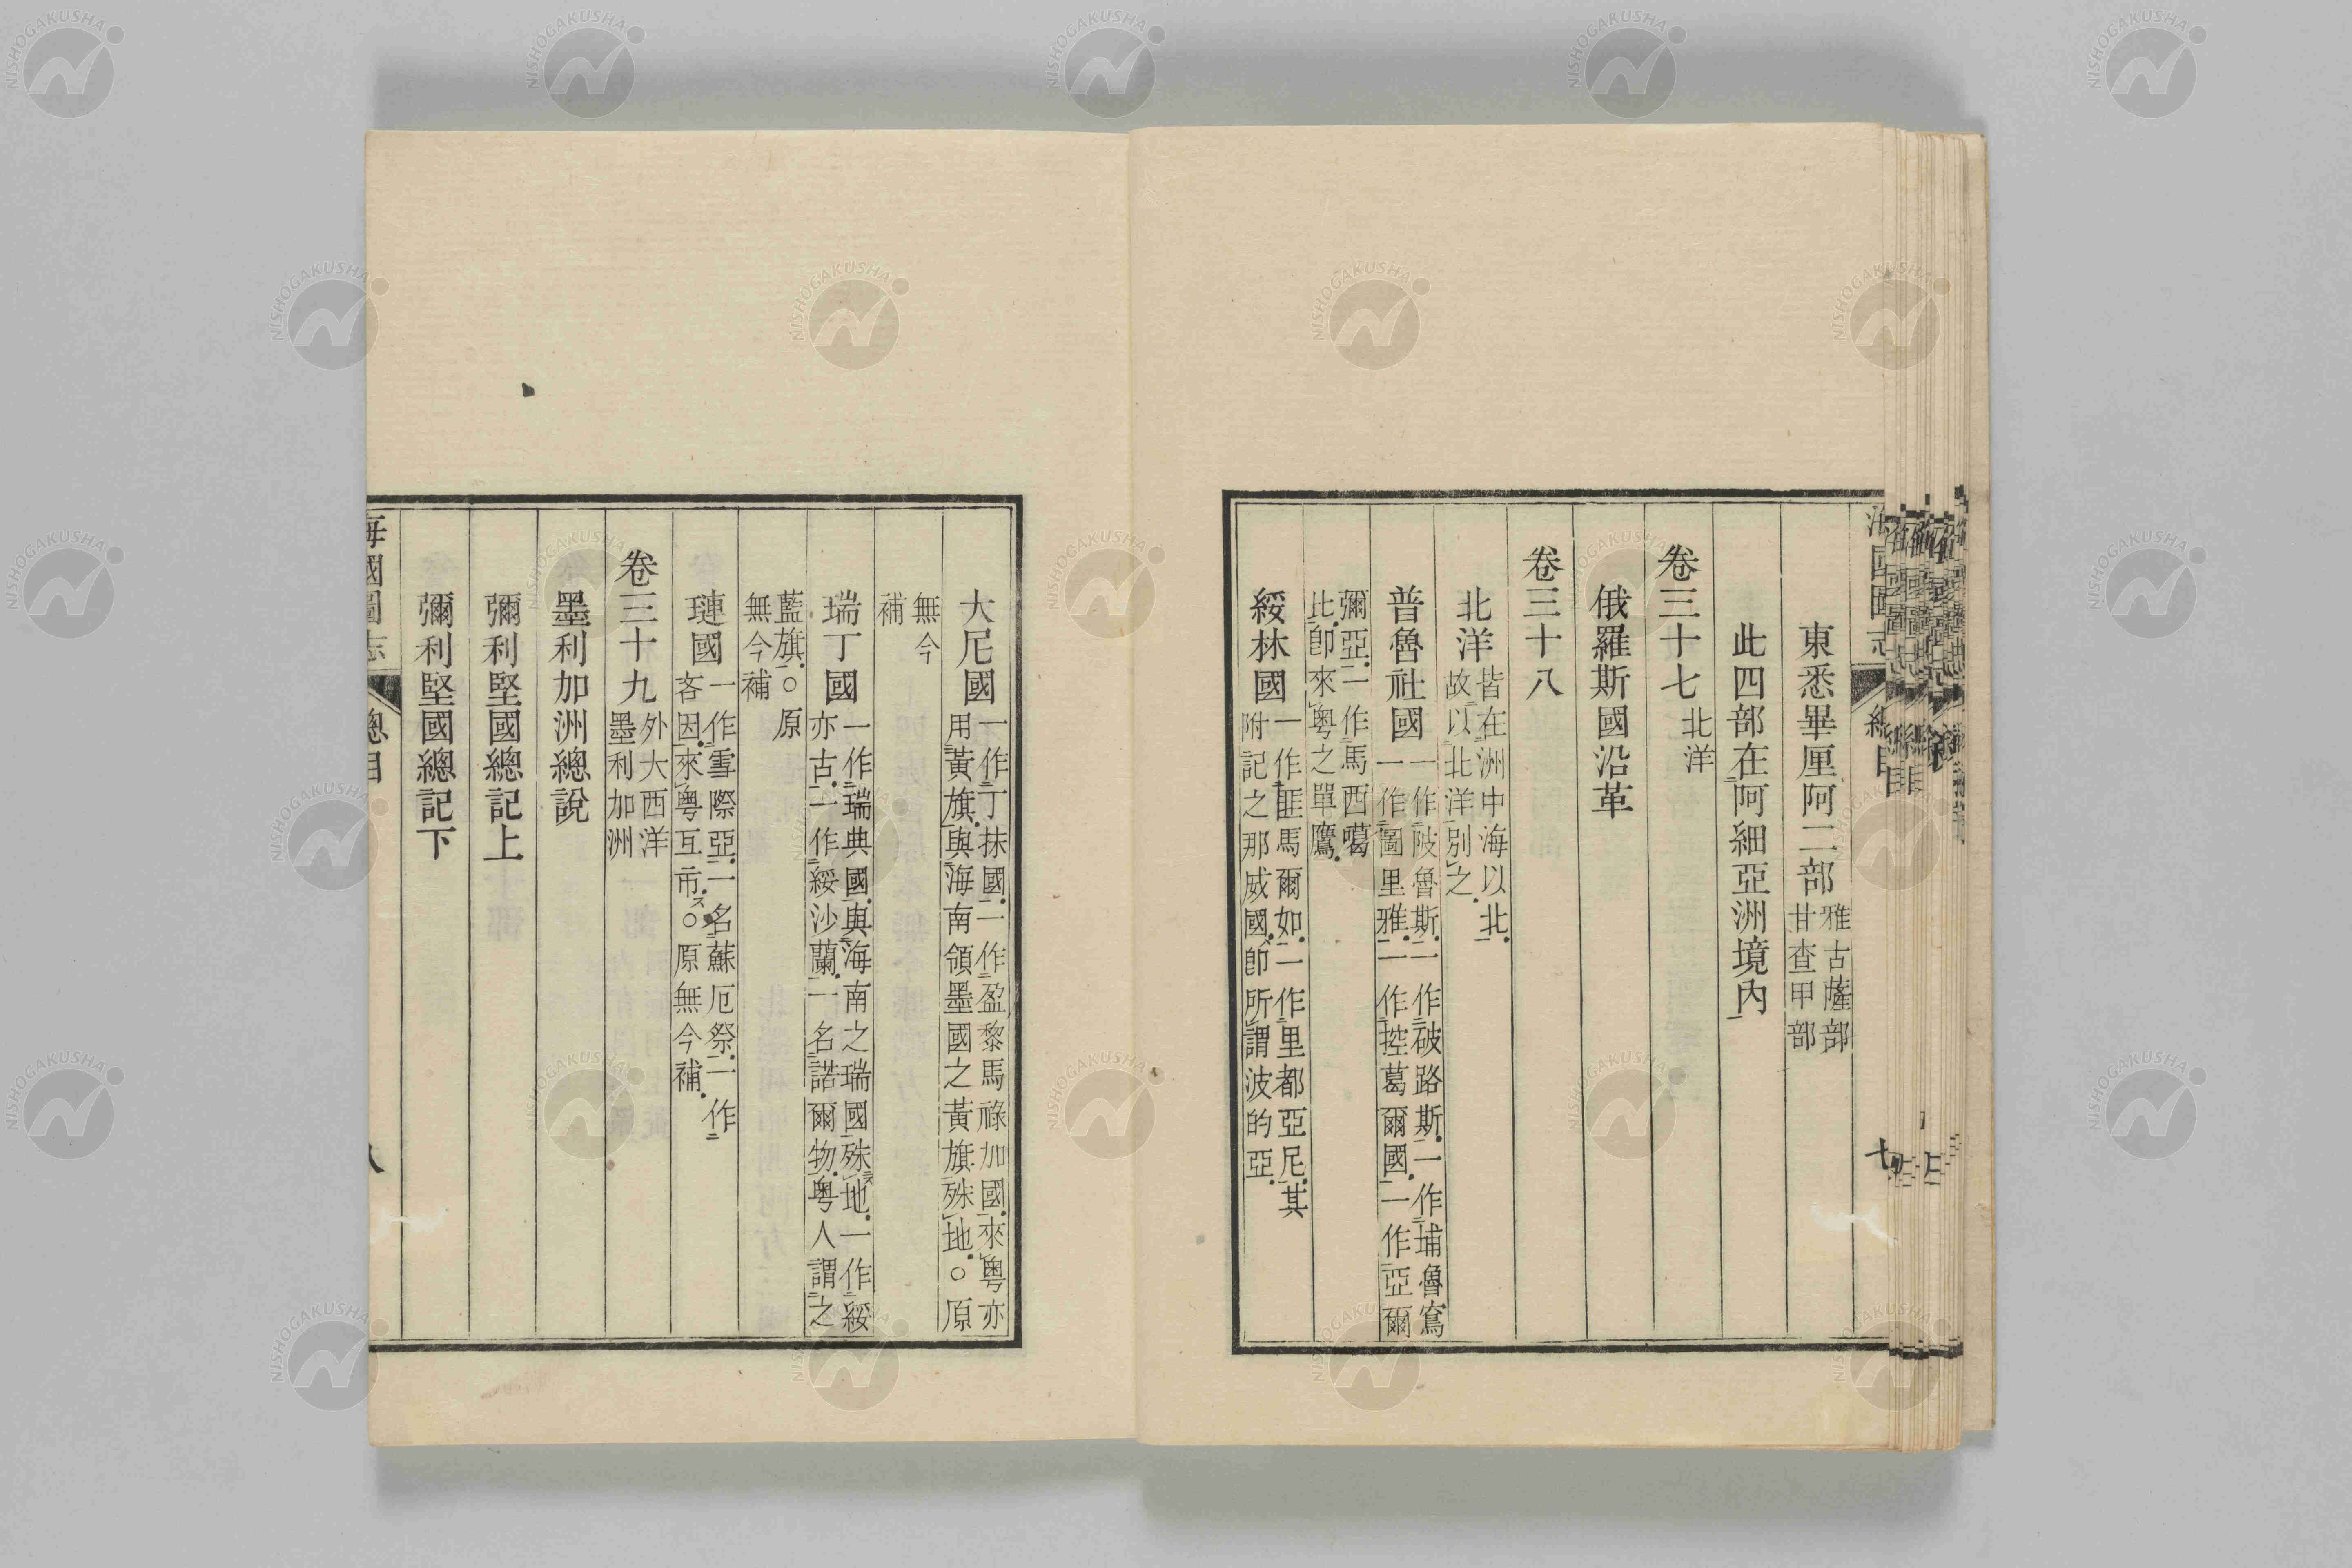 東悉畢厘阿二部 雅古薩部 甘查甲部
此四部在阿細亞洲境內
卷三十七 北洋
俄羅斯國沿革
卷三十八
北洋 皆在洲中海以北 故以北洋別之
普魯社國 一作陂魯斯二作破路斯一作埔魯寫 一作圖里雅二作控葛爾國一作亞爾
彌亞二作馬西噶 比卽來粵之單鷹
綏林國 一作匪馬爾如二作里都亞尼其 附記之那威國卽所謂波的亞
大尼國 一作丁抹國一作盈黎馬祿加國來粵亦 用黃旗與海南領墨國之黃旗殊地○原
無今 補
瑞丁國 一作瑞典國與海南之瑞國殊地一作綏 亦古一作綏沙蘭一名諾爾物粵人謂之
藍旗○原 無今補
璉國 一作雪際亞一名蘇厄祭一作 吝因來粵互市○原無今補
卷三十九 外大西洋 墨利加洲
墨利加洲總說
彌利堅國總記上
彌利堅國總記下
海國圖志 總目 八
NISHOGAKUSHA